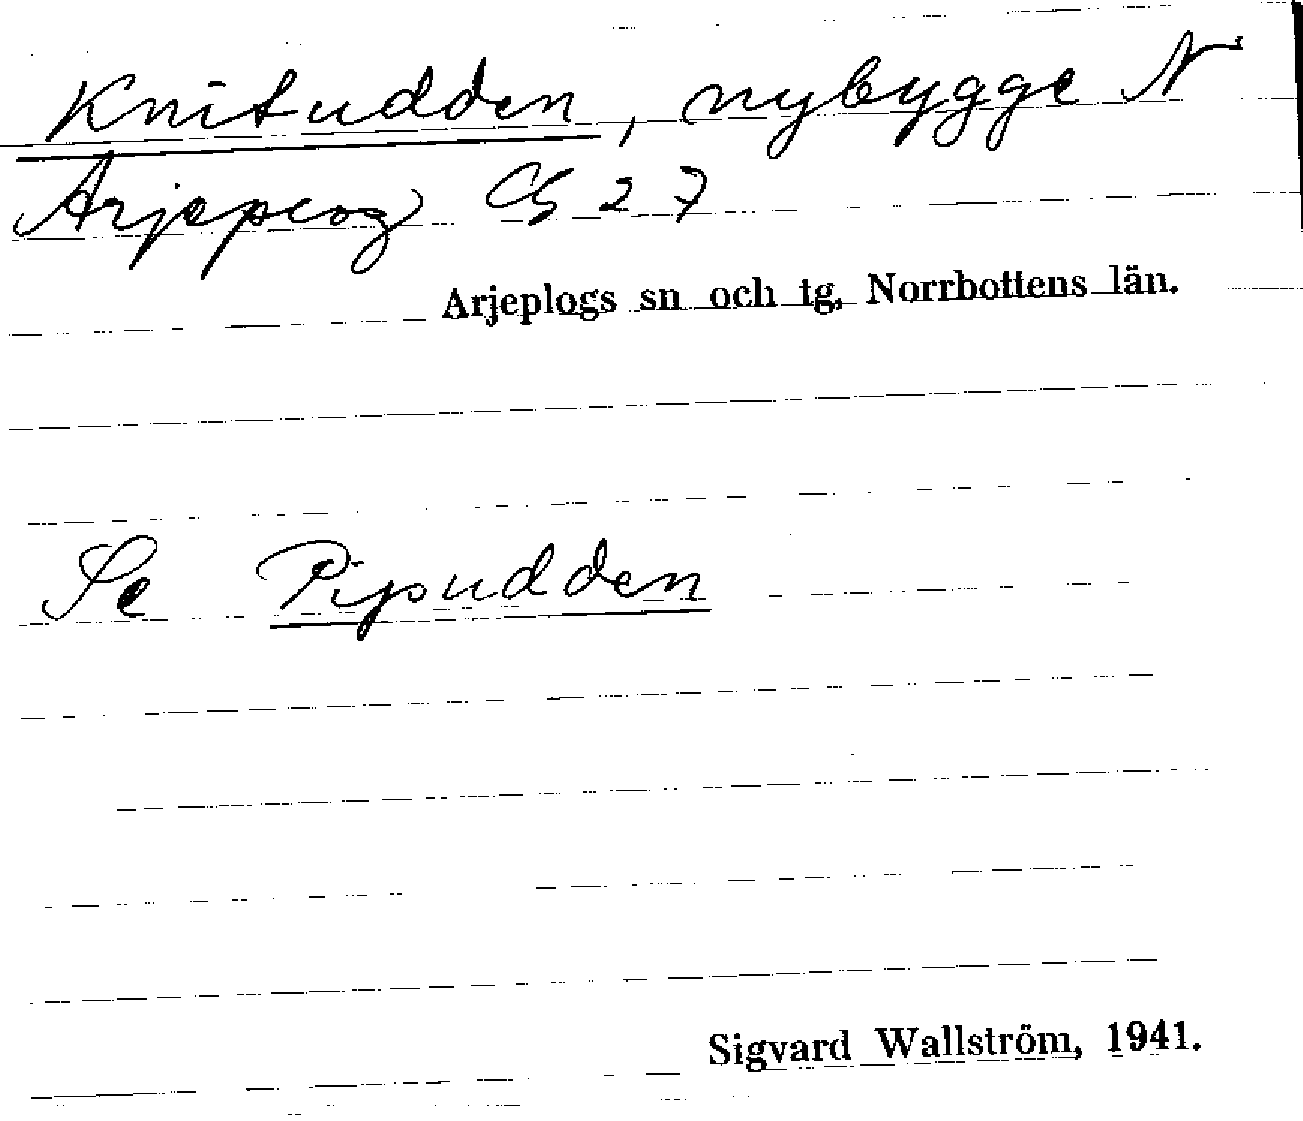 Knitudden, nybygge N
Arjeplog CG 27
Arjeplogs sn och tg, Norrbottens län.
Se Pipudden
Sigvard Wallström, 1941.